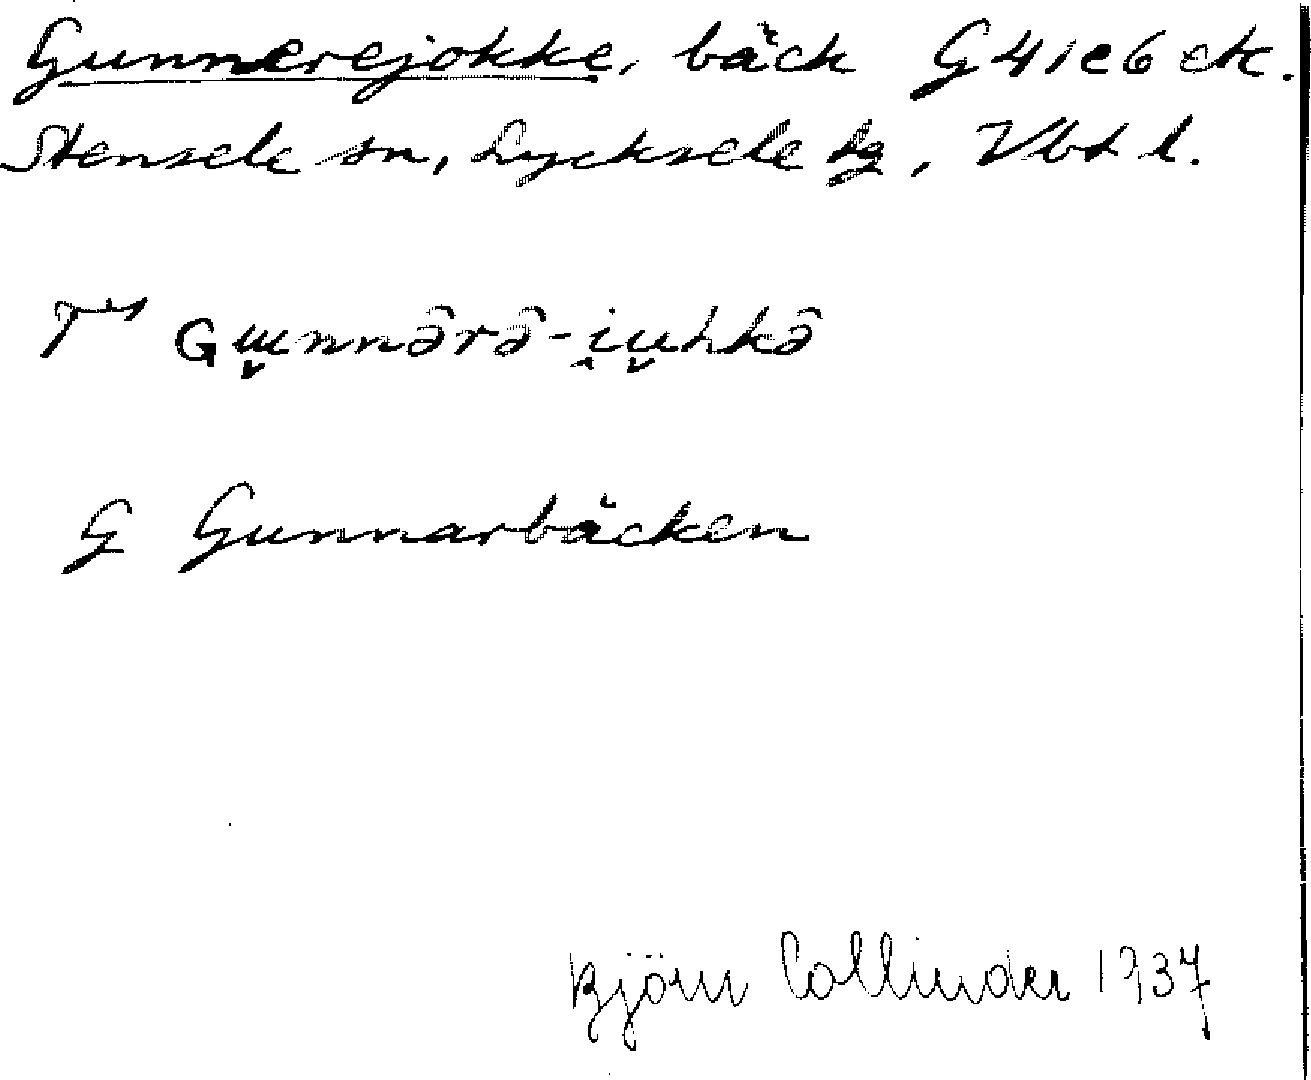 Gunnerejokke, bäck G41e6 etc.
Stensele sn, Lycksele lg, Vbt l.
G Gunnarbäcken
Björn Collinder 1937